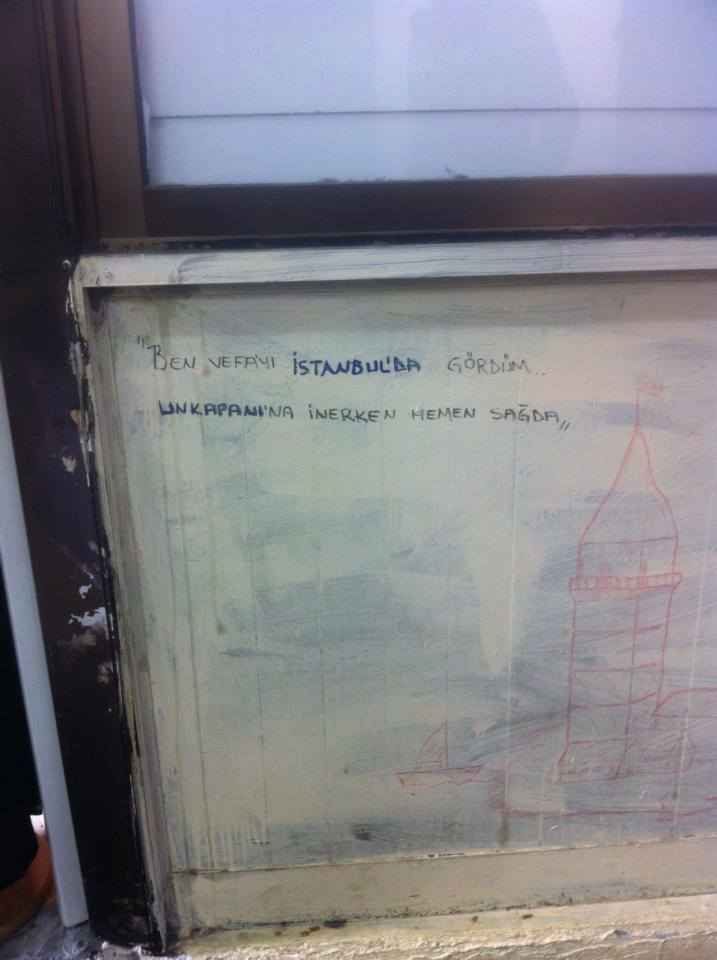 "BEN VEFA'YI İSTANBUL'DA GÖRDÜM..
UNKAPANI'NA İNERKEN HEMEN SAĞDA,,